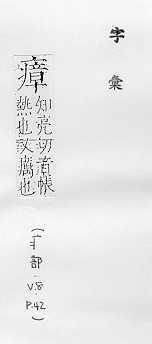 字彙
瘴
知亮切音帳
熱也疫癘也
(疒部 V.8 P.42)